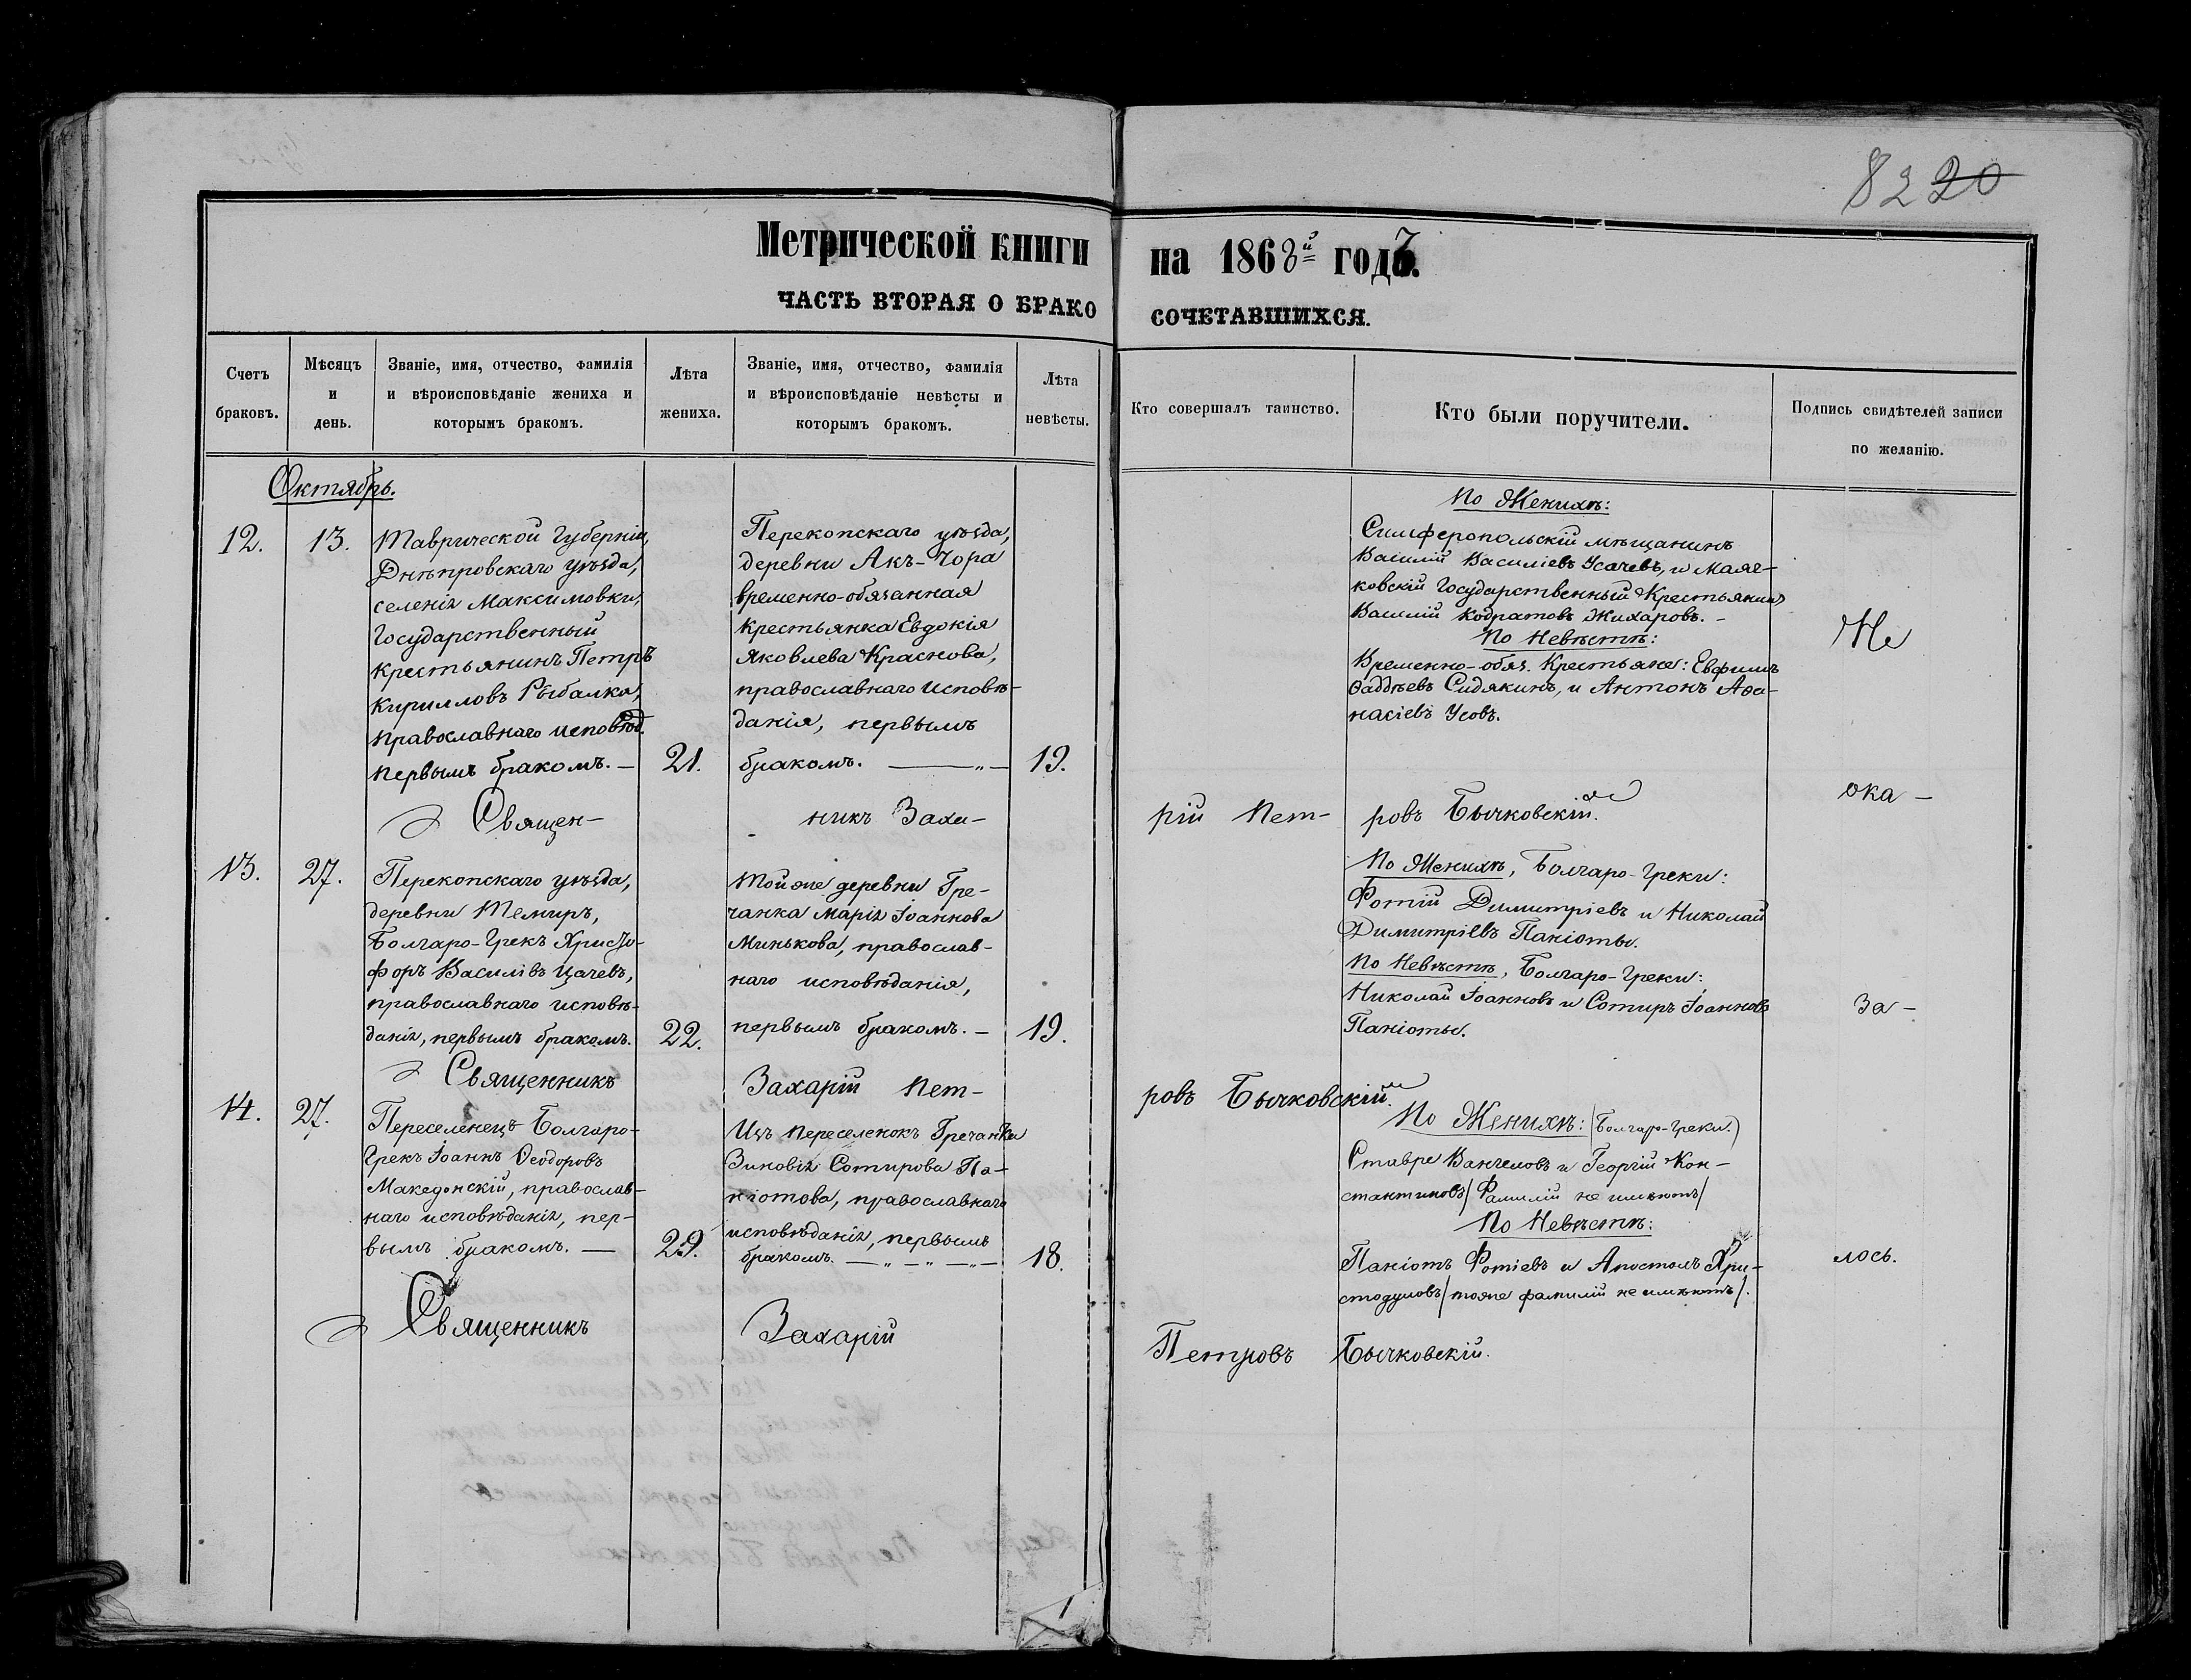 82 20
Метрической книги на 1868й годъ.
ЧАСТЬ ВТОРАЯ О БРАКОСОЧЕТАВШИХСЯ.
Счетъ
браковъ.
Мѣсяцъ
и
день.
Званіе, имя, отчество, фамилія
и вѣроисповѣданіе жениха и
которымъ бракомъ.
Лѣта
жениха.
Званіе, имя, отчество, фамилія
и вѣроисповѣданіе невѣсты и
которымъ бракомъ.
Лѣта
невѣсты.
Кто совершалъ таинство.
Кто были поручители.
Подпись свидѣтелей записи
по желанію.
Октябрь.
12.
13.
Таврической Губерніи,
Днѣпровскаго уѣзда,
селенія Максимовки,
Государственный
крестьянинъ Петръ
Кирилловъ Рыбалка,
православнаго исповѣд.
первымъ бракомъ. —
21.
Перекопскаго уѣзда,
деревни Акъ-Чора
временно-обязанная
крестьянка Евдокія
Яковлева Краснова,
православнаго исповѣ-
данія, первымъ
бракомъ. — „ —
19.
По Женихѣ:
Симферопольскій мѣщанинъ
Василій Василіевъ Усачевъ, и Маяч-
ковскій Государственный Крестьянинъ
Василій Кодратовъ Жихаровъ. -
По Невѣстѣ:
Временно-обяз. Крестьяне: Евфимъ
Ѳаддѣевъ Сидякинъ, и Антонъ Аѳа-
насіевъ Усовъ.
Не
Священ- никъ Заха- рій Пет- ровъ Бычковскій.
ока -
13.
27.
Перекопскаго уѣзда,
деревни Темиръ,
Болгаро-Грекъ Христо-
форъ Василівъ Цачевъ,
православнаго исповѣ-
данія, первымъ бракомъ.
22.
Той же деревни Гре-
чанка Марія Іоаннова
Минькова, православ-
наго исповѣданія,
первымъ бракомъ. —
19.
По Женихѣ, Болгаро-Греки:
Фотій Димитріевъ и Николай
Димитріевъ Паніоты.
По Невѣстѣ, Болгаро-Греки:
Николай Іоанновъ и Сотиръ Іоанновъ
Паніоты.
за -
Священникъ Захарій Пет- ровъ Бычковскій.
14.
27.
Переселенецъ Болгаро-
Грекъ Іоаннъ Ѳеодоровъ
Македонскій, православ-
наго исповѣданія, пер-
вымъ бракомъ. —
29.
Изъ переселенокъ Гречанка
Зиновія Сотирова Па-
ніотова, православнаго
исповѣданія, первымъ
бракомъ. — „ — „ — „ —
18.
По Женихѣ: (Болгаро-Греки.)
Ставре Вангеловъ и Георгій Кон-
стантиновъ /Фамилій не имѣютъ/
По Невѣстѣ:
Паніотъ Фотіевъ и Апостолъ Хри-
стодуловъ /тоже фамилій не имѣютъ/.
лось.
Священникъ Захарій Петровъ Бычковскій.